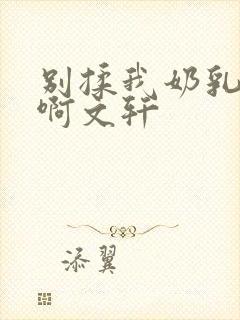 别揉我奶乳
啊文轩
添翼